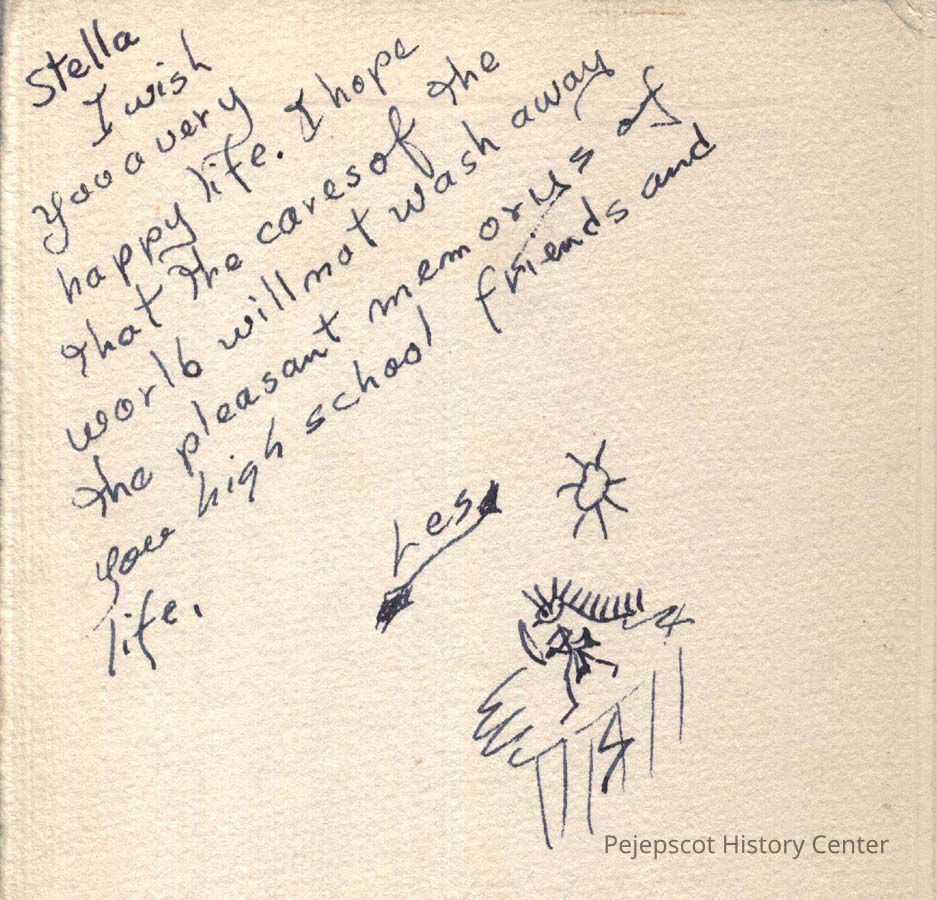 Stella
I wish
you a very
happy life. I hope
that the cares of the
worlb will not wash away
the pleasant memorys of
your high school friends and
life.
Les
Pejepscot History Center